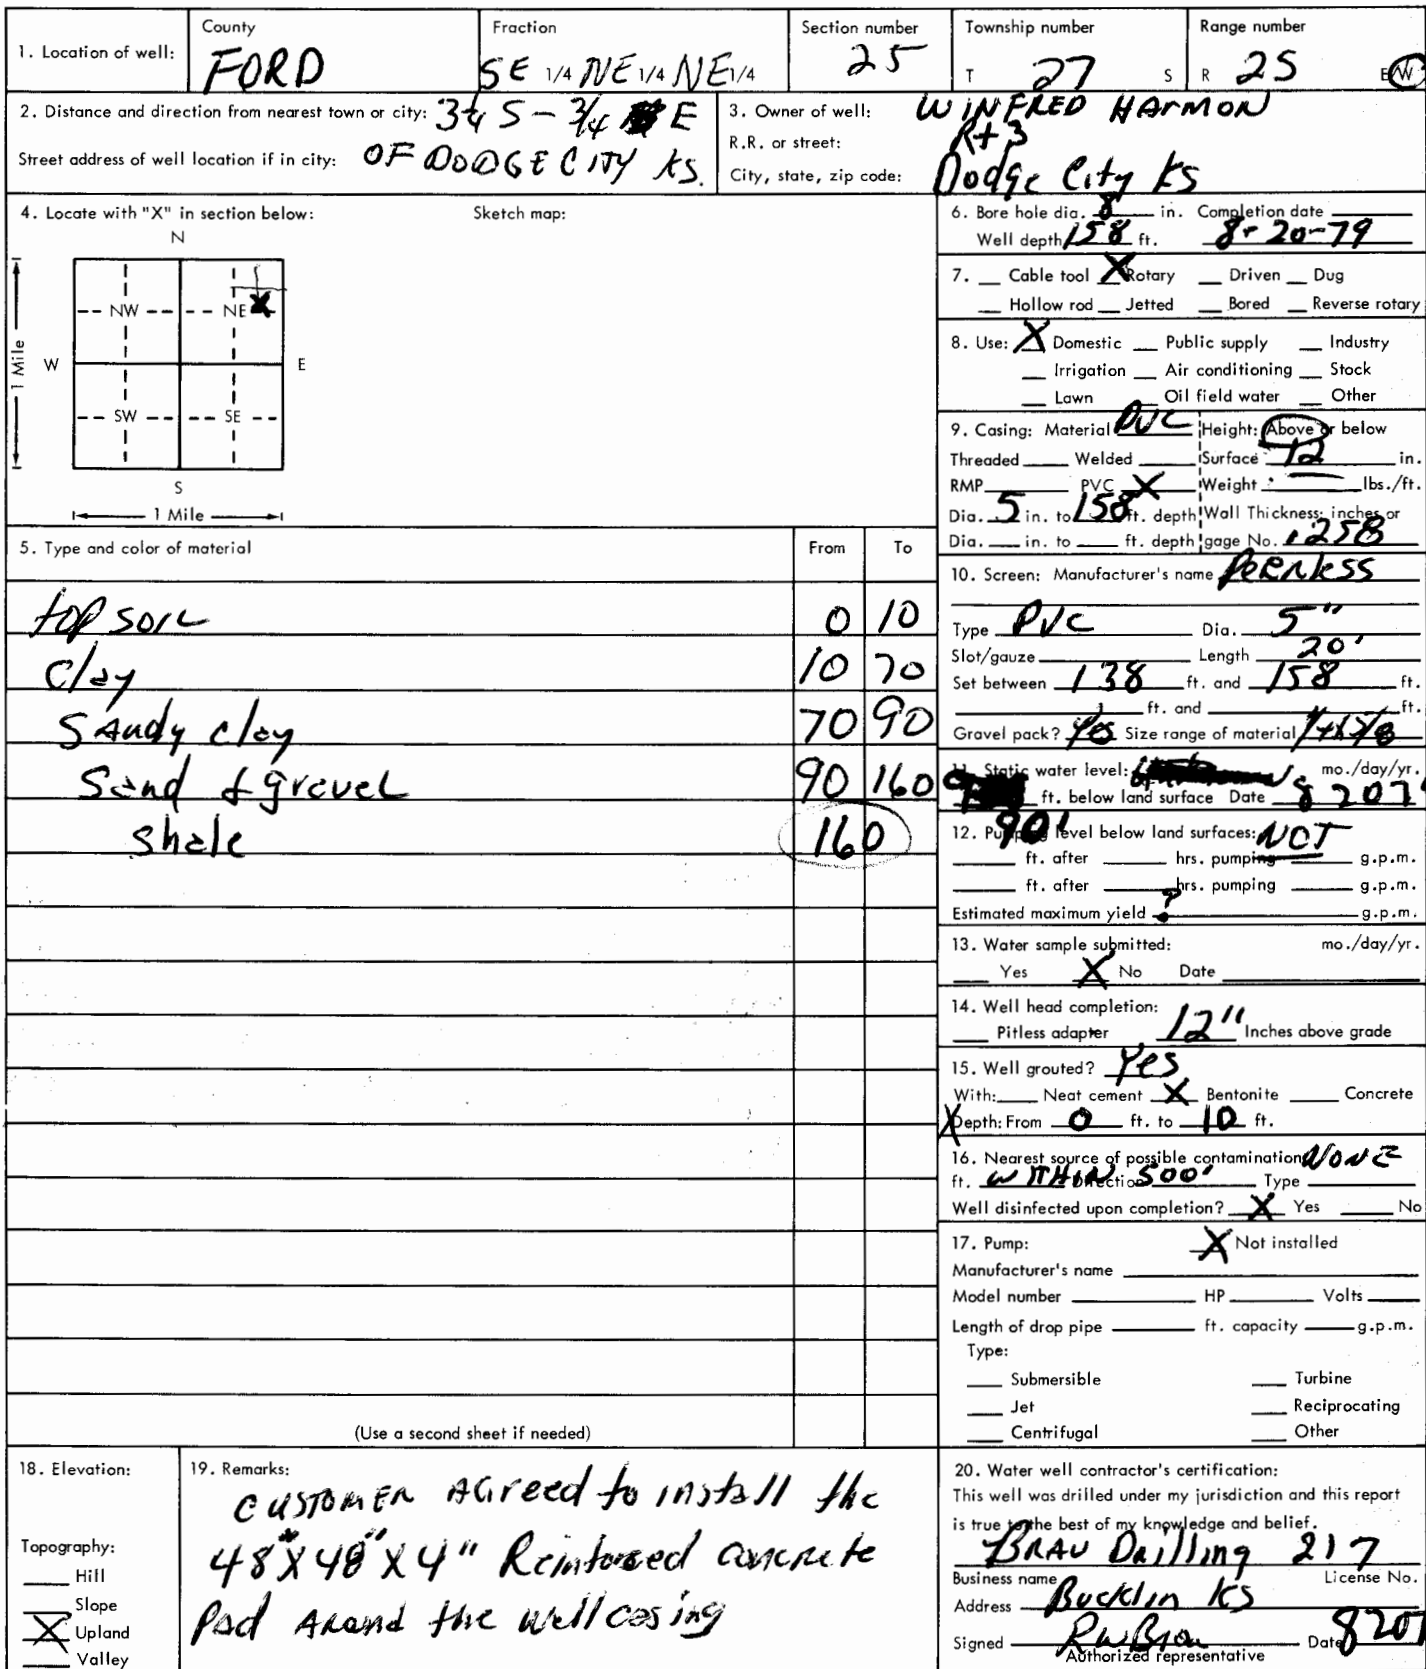 1. Location of well: County FORD Fraction SE 1/4 NE 1/4 NE 1/4 Section number 25 Township number T 27 S Range number R 25 E/W
2. Distance and direction from nearest town or city: S - 3/4 E
Street address of well location if in city: OF DODGE CITY KS.
3. Owner of well: WINFRED HARMON
R.R. or street: Rt 3
City, state, zip code: Dodge City KS
4. Locate with "X" in section below: Sketch map:
N
NW NE X
W E
1 Mile
SW SE
S
1 Mile
5. Type and color of material From To
top soil 0 10
Clay 10 70
Sandy clay 70 90
Sand & gravel 90 160
Shale 160
(Use a second sheet if needed)
6. Bore hole dia. 8 in. Completion date
Well depth 158 ft. 8-20-79
7. __ Cable tool X Rotary __ Driven __ Dug
__ Hollow rod __ Jetted __ Bored __ Reverse rotary
8. Use: X Domestic __ Public supply __ Industry
__ Irrigation __ Air conditioning __ Stock
__ Lawn __ Oil field water __ Other
9. Casing: Material PVC Height: Above or below
Threaded __ Welded __ Surface 12 in.
RMP __ PVC X Weight __ lbs./ft.
Dia. 5 in. to 158 ft. depth Wall Thickness: inches or
Dia. __ in. to __ ft. depth gage No. .258
10. Screen: Manufacturer's name Peerless
Type PVC Dia. 5"
Slot/gauze __ Length 20'
Set between 138 ft. and 158 ft.
__ ft. and __ ft.
Gravel pack? Yes Size range of material
11. Static water level: mo./day/yr.
ft. below land surface Date 8 207
90'
12. Pumping level below land surfaces: NOT
__ ft. after __ hrs. pumping __ g.p.m.
__ ft. after __ hrs. pumping __ g.p.m.
Estimated maximum yield ? g.p.m.
13. Water sample submitted: mo./day/yr.
__ Yes X No Date __
14. Well head completion:
__ Pitless adapter 12" Inches above grade
15. Well grouted? Yes
With: __ Neat cement X Bentonite __ Concrete
X Depth: From 0 ft. to 10 ft.
16. Nearest source of possible contamination NONE
ft. WITHIN Direction 500' Type __
Well disinfected upon completion? X Yes __ No
17. Pump: X Not installed
Manufacturer's name __
Model number __ HP __ Volts __
Length of drop pipe __ ft. capacity __ g.p.m.
Type:
__ Submersible __ Turbine
__ Jet __ Reciprocating
__ Centrifugal __ Other
18. Elevation:
Topography:
__ Hill
__ Slope
X Upland
__ Valley
19. Remarks:
CUSTOMER AGreed to install the
48"X48"X4" Reinforced concrete
Pad Around the well casing
20. Water well contractor's certification:
This well was drilled under my jurisdiction and this report
is true to the best of my knowledge and belief.
BRAU Drilling 217
Business name License No.
Address Bucklin KS
Signed RW Brau Date 8 207
Authorized representative